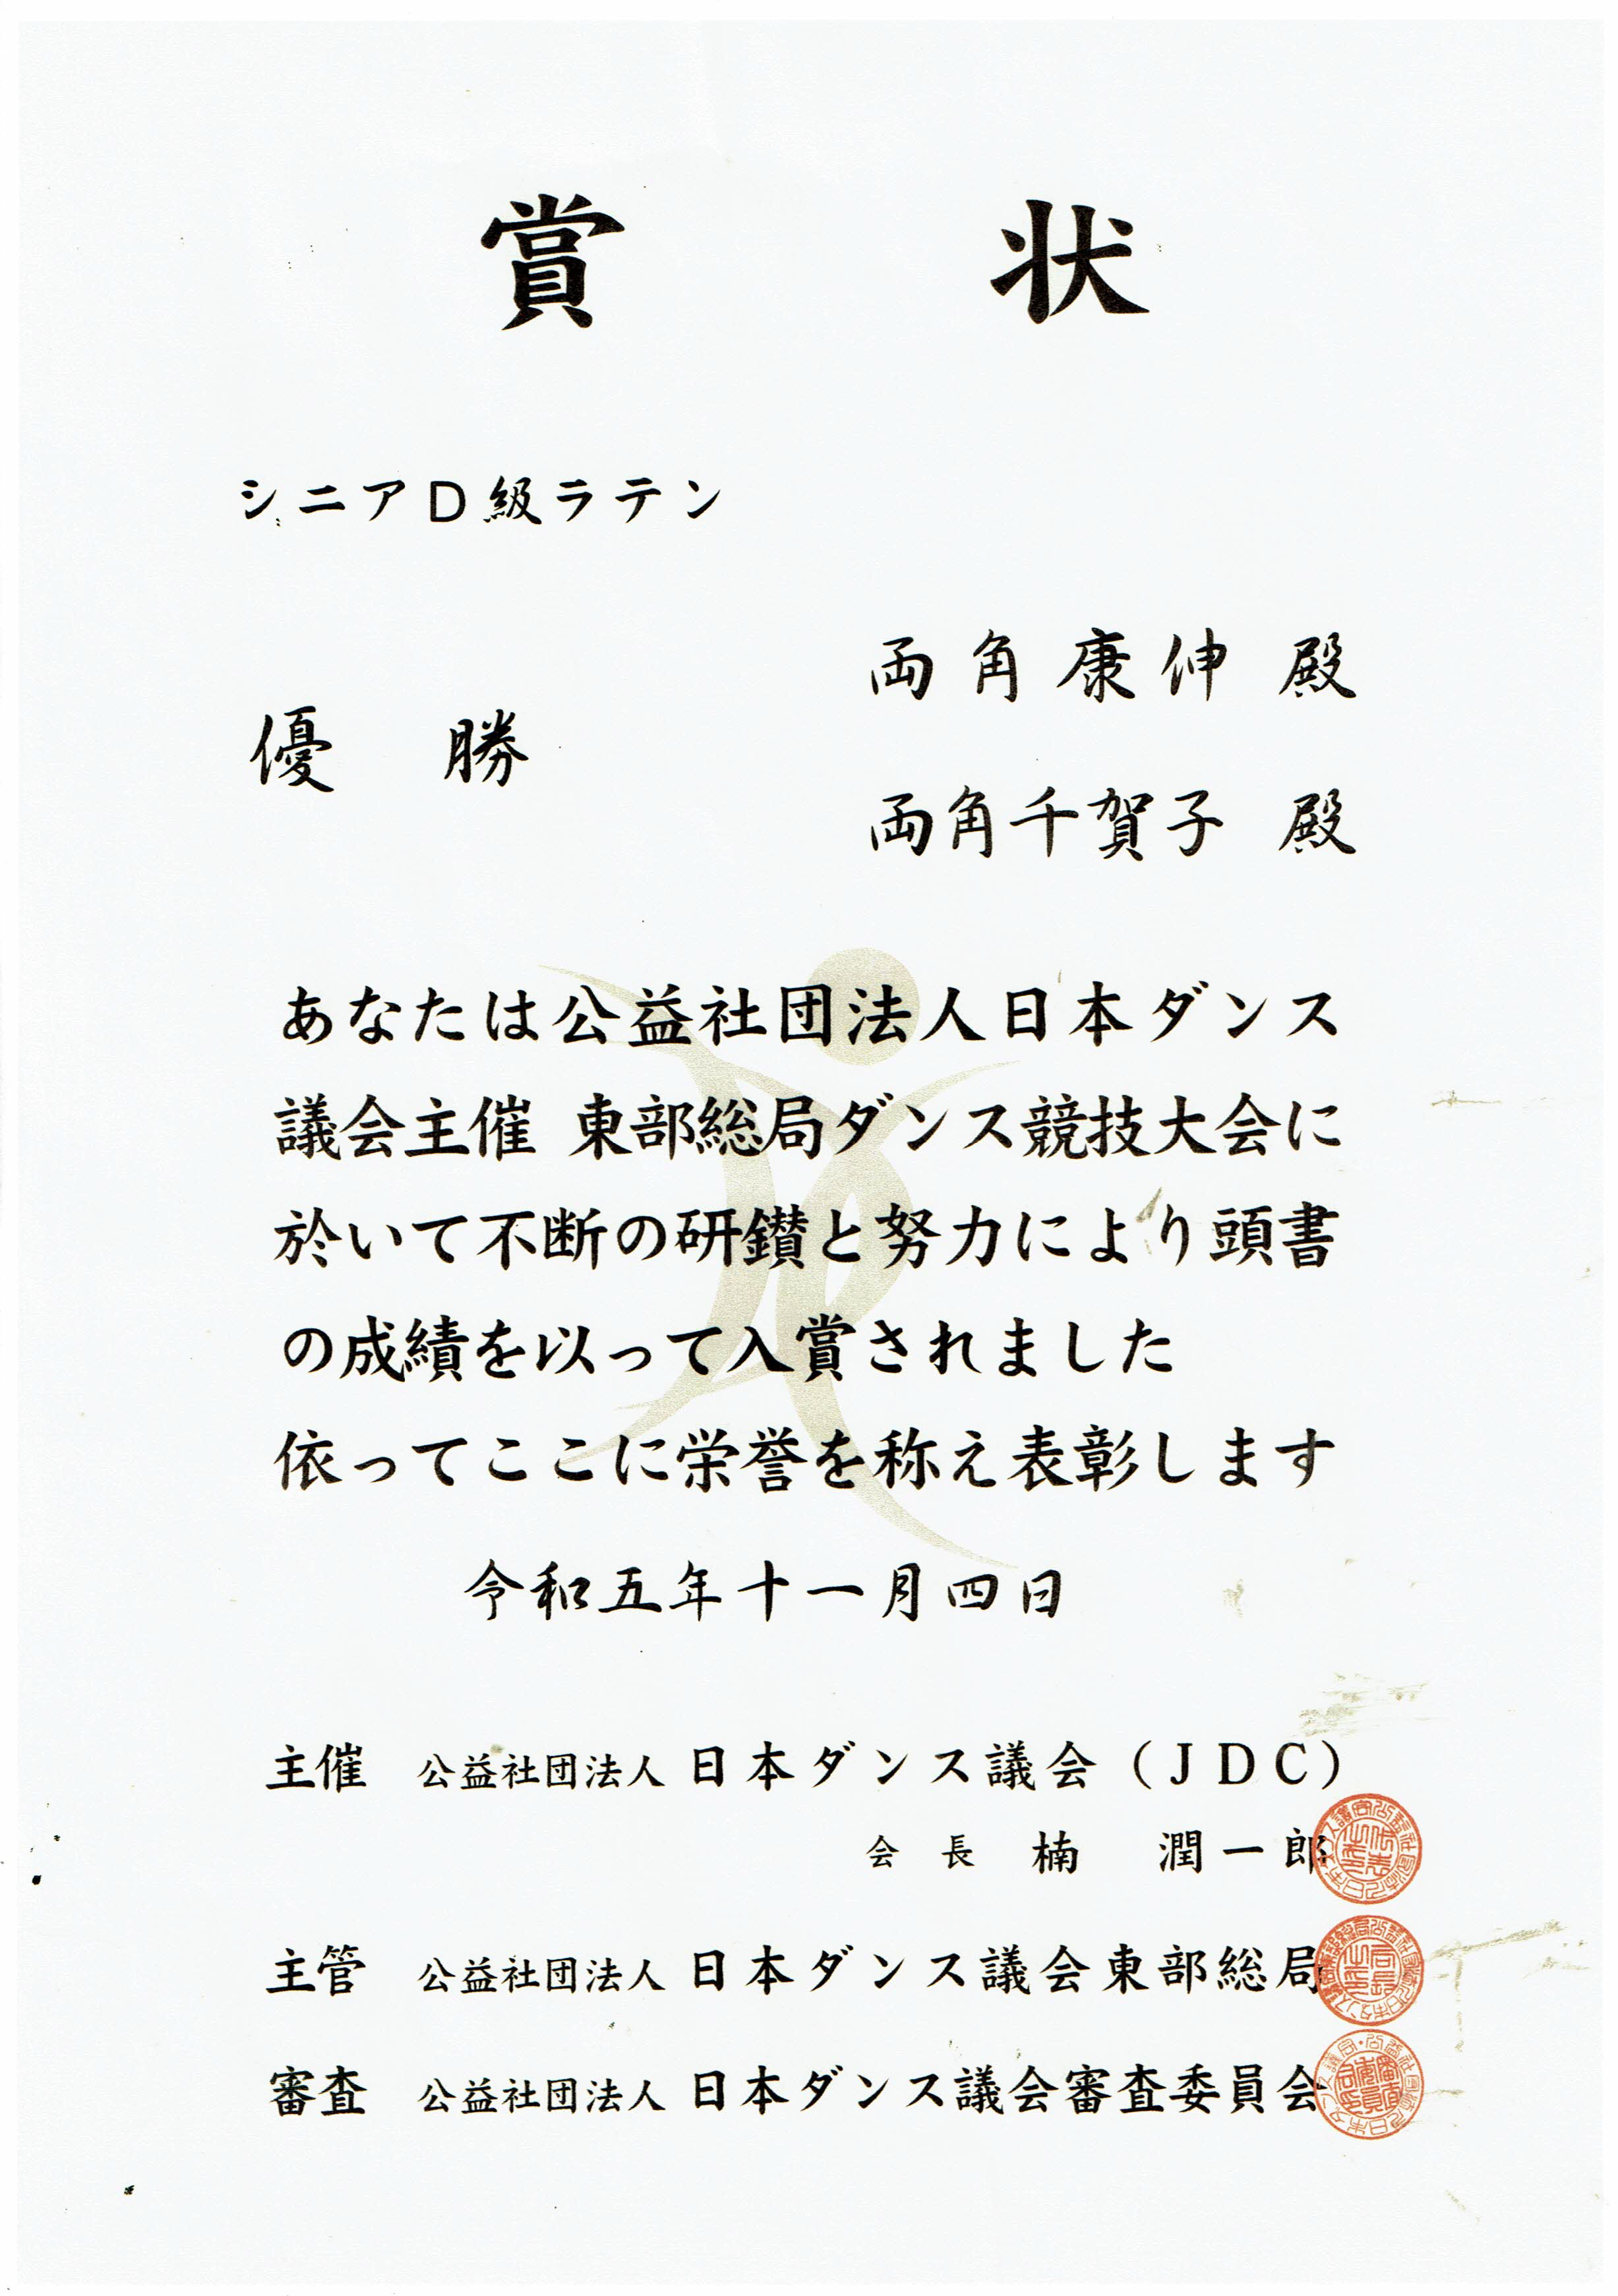 賞状
シニアD級ラテン
両角康伸 殿
優勝
両角千賀子 殿
あなたは公益社団法人日本ダンス
議会主催 東部総局ダンス競技大会に
於いて不断の研鑽と努力により頭書
の成績を以って入賞されました
依ってここに栄誉を称え表彰します
令和五年十一月四日
主催 公益社団法人 日本ダンス議会（JDC）
会長 楠 潤一郎
主管 公益社団法人 日本ダンス議会東部総局
審査 公益社団法人 日本ダンス議会審査委員会